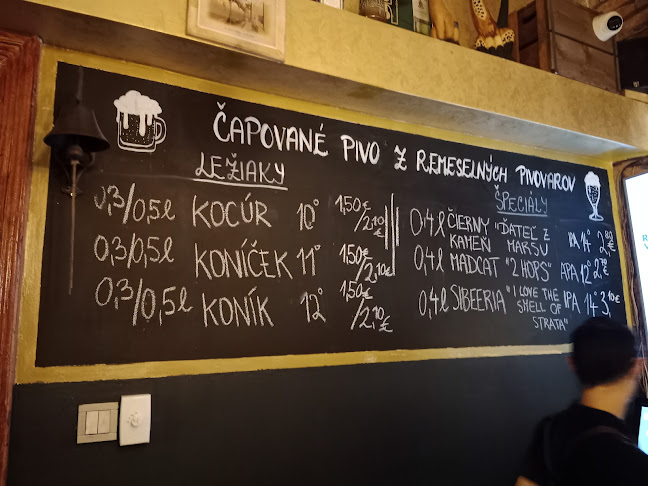 ČAPOVANÉ PIVO Z REMESELNÝCH PIVOVAROV
LEŽIAKY
0,3/0,5l KOCÚR 10° 1,50€/2,10€
0,3/0,5l KONÍČEK 11° 1,50€/2,10€
0,3/0,5l KONÍK 12° 1,50€/2,10€
ŠPECIÁLY
0,4l ČIERNY KAMEŇ "ĎATEĽ Z MARSU IPA 14°
0,4l MADCAT "2 HOPS" APA 12°
0,4l SIBEERIA "I LOVE THE SMELL OF STRATA" IPA 14° 3,10€